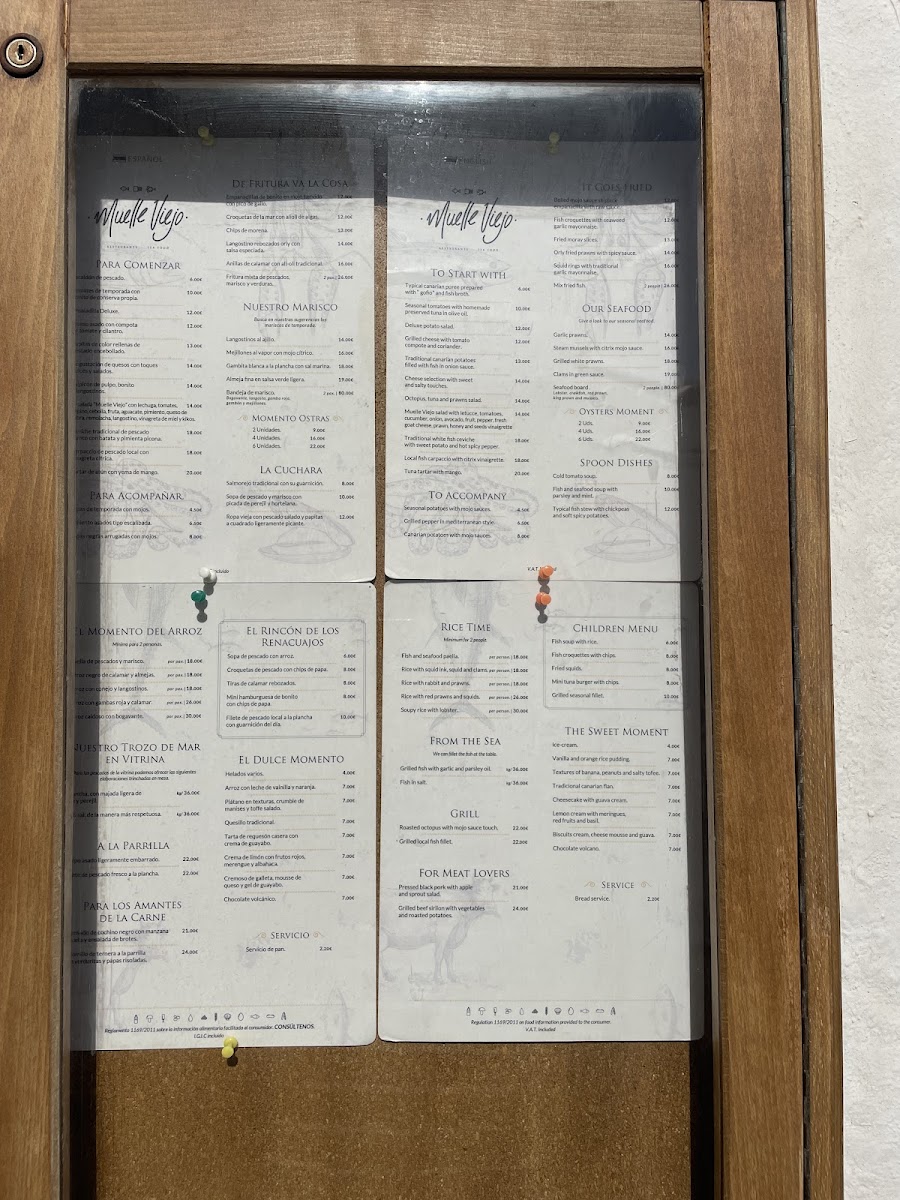 ESPAÑOL
Muelle Viejo
PARA COMENZAR
de pescado. 6.00€
de temporada con 10.00€
conserva propia.
Deluxe. 12.00€
asado con compota 12.00€
y cilantro.
de color rellenas de 13.00€
encebollado.
de quesos con toques 14.00€
y salados.
de pulpo, bonito 14.00€
langostinos.
"Muelle Viejo" con lechuga, tomates, 14.00€
cebolla, fruta, aguacate, pimiento, queso de
remolacha, langostino, vinagreta de miel y kikos.
tradicional de pescado 18.00€
con batata y pimienta picona.
de pescado local con 18.00€
cítrica.
de atún con yema de mango. 20.00€
PARA ACOMPAÑAR
de temporada con mojos. 4.50€
asados tipo escalibada. 6.50€
negras arrugadas con mojos. 8.00€
DE FRITURA VA LA COSA
Empanadillas de
con pica de gallo.
Croquetas de la mar con alioli de algas. 12.00€
Chips de morena. 12.00€
Langostino rebozados orly con 14.00€
salsa especiada.
Anillas de calamar con alioli tradicional. 16.00€
Fritura mixta de pescados, 2 pax | 26.00€
marisco y verduras.
NUESTRO MARISCO
Busca en nuestras sugerencias los
mariscos de temporada.
Langostinos al ajillo. 14.00€
Mejillones al vapor con mojo cítrico. 16.00€
Gambita blanca a la plancha con sal marina. 18.00€
Almeja fina en salsa verde ligera. 19.00€
Bandeja de marisco. 2 pax | 80.00€
Bogavante, langosta, gamba roja,
gambas y mejillones.
MOMENTO OSTRAS
2 Unidades. 9.00€
4 Unidades. 16.00€
6 Unidades. 22.00€
LA CUCHARA
Salmorejo tradicional con su guarnición. 8.00€
Sopa de pescado y marisco con 10.00€
picada de perejil y hortelana.
Ropa vieja con pescado salado y papitas 12.00€
a cuadrado ligeramente picante.
incluido
Muelle Viejo
TO START WITH
Typical canarian puree prepared 6.00€
with "gofio" and fish broth.
Seasonal tomatoes with homemade 10.00€
preserved tuna in olive oil.
Deluxe potato salad. 12.00€
Grilled cheese with tomato 12.00€
compote and coriander.
Traditional canarian potatoes 13.00€
filled with fish in onion sauce.
Cheese selection with sweet 14.00€
and salty touches.
Octopus, tuna and prawns salad. 14.00€
Muelle Viejo salad with lettuce, tomatoes, 14.00€
cucumber, onion, avocado, fruit, pepper, fresh
goat cheese, prawn, honey and seeds vinaigrette.
Traditional white fish ceviche 18.00€
with sweet potato and hot spicy pepper.
Local fish carpaccio with citrix vinaigrette. 18.00€
Tuna tartar with mango. 20.00€
TO ACCOMPANY
Seasonal potatoes with mojo sauces. 4.50€
Grilled pepper in mediterranean style. 6.50€
Canarian potatoes with mojo sauces. 8.00€
IT GOES FRIED
Fish croquettes with seaweed 12.00€
garlic mayonnaise.
Fried moray slices. 12.00€
Orly fried prawns with spicy sauce. 14.00€
Squid rings with traditional 16.00€
garlic mayonnaise.
Mix fried fish. 2 people | 26.00€
OUR SEAFOOD
Give a look to our seasonal seafood.
Garlic prawns. 14.00€
Steam mussels with citrix mojo sauce. 16.00€
Grilled white prawns. 18.00€
Clams in green sauce. 19.00€
Seafood board. 2 people | 80.00€
Lobster, crawfish, red prawn,
king prawn and mussels.
OYSTERS MOMENT
2 Uds. 9.00€
4 Uds. 16.00€
6 Uds. 22.00€
SPOON DISHES
Cold tomato soup. 8.00€
Fish and seafood soup with 10.00€
parsley and mint.
Typical fish stew with chickpeas 12.00€
and soft spicy potatoes.
V.A.T.
EL MOMENTO DEL ARROZ
Mínimo para 2 personas.
de pescados y marisco. por pax | 18.00€
negro de calamar y almejas. por pax | 18.00€
con conejo y langostinos. por pax | 18.00€
con gambas roja y calamar por pax | 26.00€
caldoso con bogavante. por pax | 30.00€
NUESTRO TROZO DE MAR
EN VITRINA
los pescados de la vitrina podemos ofrecer las siguientes
elaboraciones trinchadas en mesa.
con majada ligera de kg/ 36.00€
perejil.
sal, de la manera más respetuosa. kg/ 36.00€
A LA PARRILLA
ligeramente embarrado. 22.00€
de pescado fresco a la plancha. 22.00€
PARA LOS AMANTES
DE LA CARNE
de cochino negro con manzana 21.00€
y ensalada de brotes.
de ternera a la parrilla 24.00€
y papas risoladas.
EL RINCÓN DE LOS
RENACUAJOS
Sopa de pescado con arroz. 6.00€
Croquetas de pescado con chips de papa. 8.00€
Tiras de calamar rebozados. 8.00€
Mini hamburguesa de bonito 8.00€
con chips de papa.
Filete de pescado local a la plancha 10.00€
con guarnición del día.
EL DULCE MOMENTO
Helados varios. 4.00€
Arroz con leche de vainilla y naranja. 7.00€
Plátano en texturas, crumble de 7.00€
manises y toffe salado.
Quesillo tradicional. 7.00€
Tarta de requesón casera con 7.00€
crema de guayabo.
Crema de limón con frutos rojos, 7.00€
merengue y albahaca.
Cremoso de galleta, mousse de 7.00€
queso y gel de guayabo.
Chocolate volcánico. 7.00€
SERVICIO
Servicio de pan. 2.20€
Reglamento 1169/2011 sobre la información alimentaria facilitada al consumidor. CONSÚLTENOS.
I.G.I.C incluido
RICE TIME
Minimum for 2 people.
Fish and seafood paella. per person | 18.00€
Rice with squid ink, squid and clams. per person | 18.00€
Rice with rabbit and prawns. per person | 18.00€
Rice with red prawns and squids. per person | 26.00€
Soupy rice with lobster. per person | 30.00€
FROM THE SEA
We can fillet the fish at the table.
Grilled fish with garlic and parsley oil. kg/ 36.00€
Fish in salt. kg/ 36.00€
GRILL
Roasted octopus with mojo sauce touch. 22.00€
Grilled local fish fillet. 22.00€
FOR MEAT LOVERS
Pressed black pork with apple 21.00€
and sprout salad.
Grilled beef sirlion with vegetables 24.00€
and roasted potatoes.
CHILDREN MENU
Fish soup with rice. 6.00€
Fish croquettes with chips. 8.00€
Fried squids. 8.00€
Mini tuna burger with chips. 8.00€
Grilled seasonal fillet. 10.00€
THE SWEET MOMENT
Ice-cream. 4.00€
Vanilla and orange rice pudding. 7.00€
Textures of banana, peanuts and salty tofee. 7.00€
Tradicional canarian flan. 7.00€
Cheesecake with guava cream. 7.00€
Lemon cream with meringues, 7.00€
red fruits and basil.
Biscuits cream, cheese mousse and guava. 7.00€
Chocolate volcano. 7.00€
SERVICE
Bread service. 2.20€
Regulation 1169/2011 on food information provided to the consumer.
V.A.T. Included